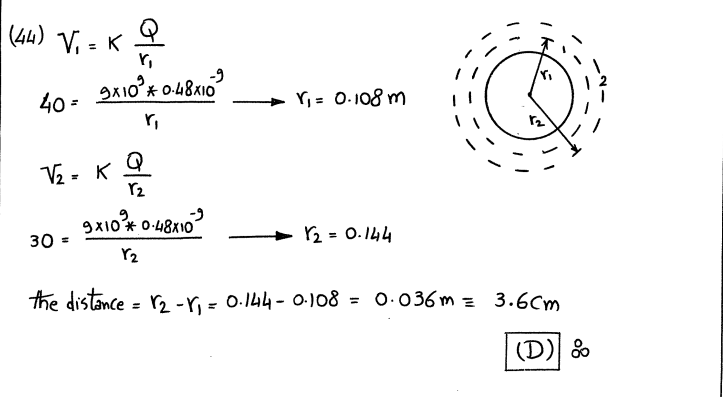 (44) V₁ = K Q/r₁
40 = 9x10⁹ * 0.48x10⁻⁹ / r₁ → r₁ = 0.108 m
V₂ = K Q/r₂
30 = 9x10⁹ * 0.48x10⁻⁹ / r₂ → r₂ = 0.144
the distance = r₂ - r₁ = 0.144 - 0.108 = 0.036 m ≡ 3.6 Cm
(D)
r₁
r₂
1
2